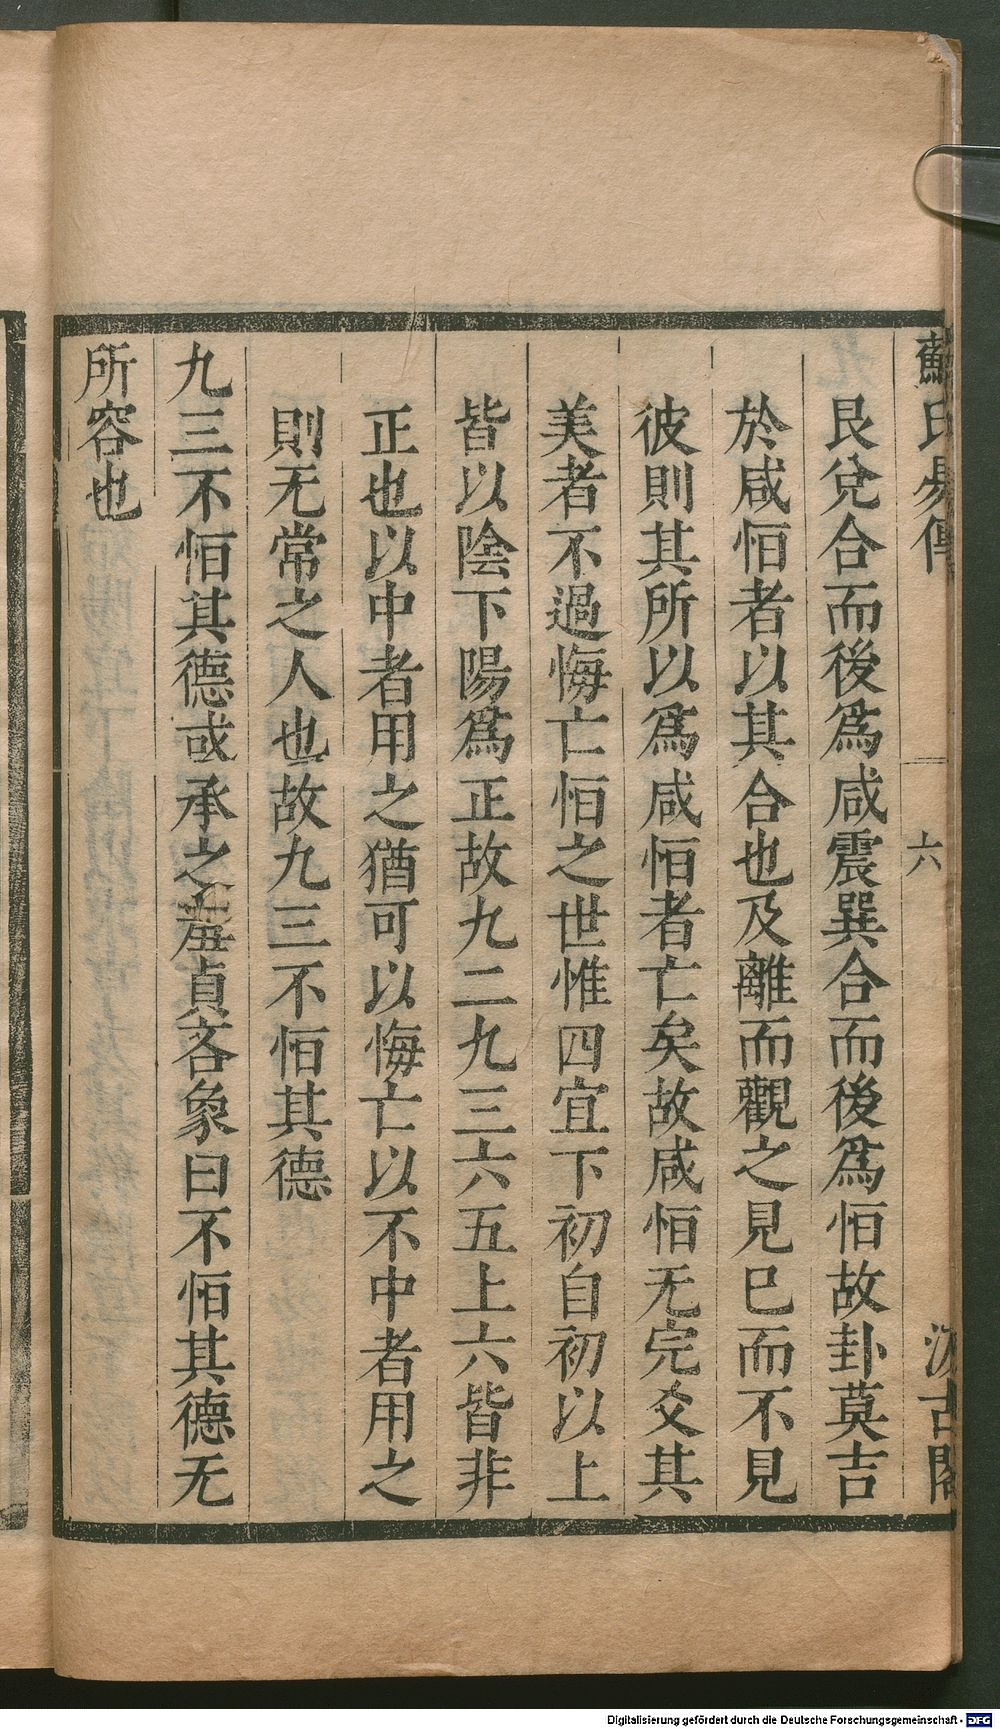 蘇氏易傳
六
汲古閣
艮兌合而後爲咸震巽合而後爲恒故卦莫吉
於咸恒者以其合也及離而觀之見巳而不見
彼則其所以爲咸恒者亡矣故咸恒无完爻其
美者不過悔亡恒之世惟四宜下初自初以上
皆以陰下陽爲正故九二九三六五上六皆非
正也以中者用之猶可以悔亡以不中者用之
則无常之人也故九三不恒其德
九三不恒其德或承之羞貞吝象曰不恒其德无
所容也
Digitalisierung gefördert durch die Deutsche Forschungsgemeinschaft - DFG